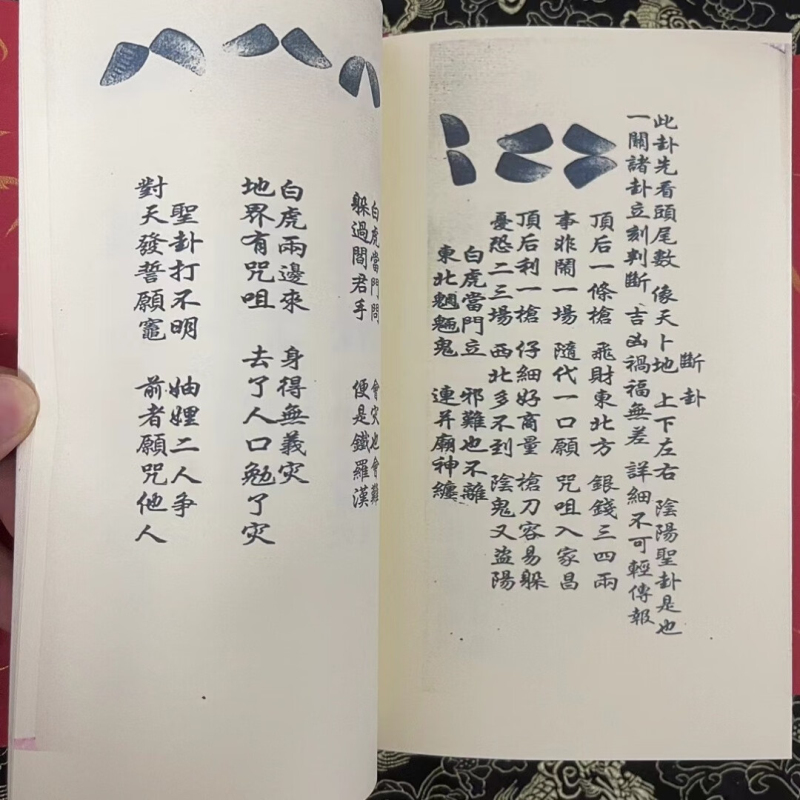 斷卦
此卦先看頭尾數 像天卜地 上下左右 陰陽聖卦是也
一關諸卦立刻判斷 吉凶禍福無差 詳細不可輕傳報
頂后一條槍 飛財東北方 銀錢三四兩
事非鬧一場 隨代一口願 咒咀入家昌
頂后利一槍 仔細好商量 槍刀容易躲
憂恐二三場 西北多不到 陰鬼又盜陽
白虎當門立 邪難也不離
東北魍魎鬼 連并廟神纏
白虎當門問 會灾也會難
躲過閻君手 便是鐵羅漢
白虎兩邊來 身得無義灾
地界有咒咀 去了人口勉了灾
聖卦打不明 妯娌二人争
對天發誓願竈 前者願咒他人